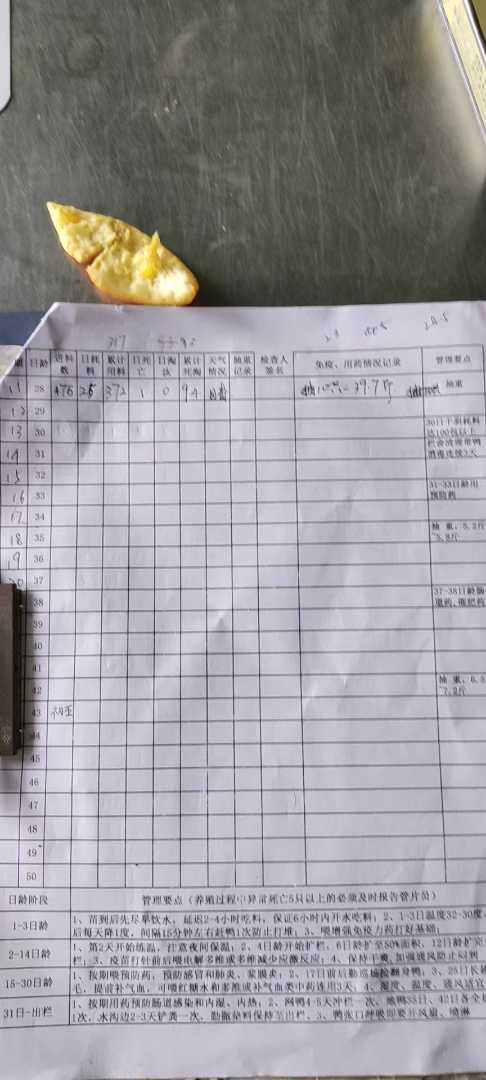 日龄 进料数 日耗料 累计用料 日死亡 日淘汰 累计死淘 天气情况 抽重记录 检查人签名 免疫、用药情况记录 管理要点
11 28 476 25 372 1 0 94 抽重
12 29
13 30 30日上羽耗料达100包以上
14 31
15 32
16 33 31-33日龄用预防药
17 34
18 35 抽重，5.2斤
19 36
20 37
38 37-38日龄肠道药、催肥药
39
40
41
42
43 初五
44
45
46
47
48
49
50
日龄阶段 管理要点（养殖过程中异常死亡5只以上的必须及时报告管片员）
1-3日龄 1、苗到后先尽早饮水，延迟2-4小时吃料，保证6小时内开水吃料；2、1-3日温度32-30度，
后每天降1度，间隔15分钟左右赶鸭1次防止打堆；3、喂增强免疫力药打好基础；
2-14日龄 1、第2天开始炼温，注意夜间保温；2、4日龄开始扩栏，6日龄扩至50%面积，12日龄扩完
栏；3、疫苗打针前后喂电解多维或多维减少应激反应；4、保持干燥，加强通风防止闷到
15-30日龄 1、按期喂预防药，预防感冒和肺炎、浆膜炎；2、17日前后勤巡场捡翻身鸭；3、25日长
毛，提前补气血，可喂红糖水和多维或补气血类中药连用3天；4、湿度、温度、通风适宜
31日-出栏 1、按期用药预防肠道感染和内湿、内热；2、网鸭4-5天冲栏一次，地鸭35日、42日各全
1次，水沟边2-3天铲粪一次，勤撒垫料保持至出栏、3、鸭张口呼吸即要开风扇、喷淋